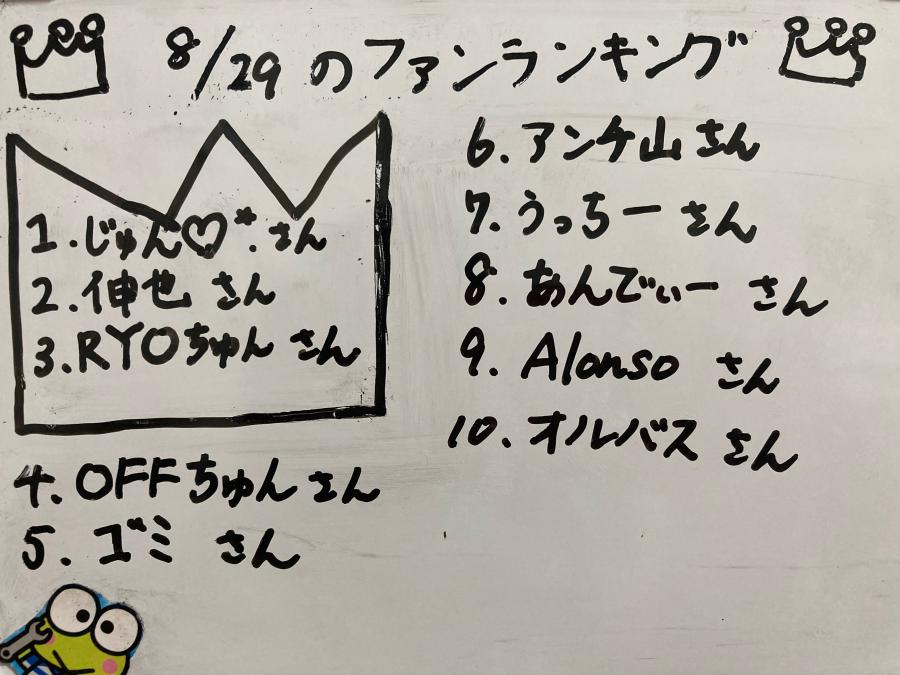 8/29 のファンランキング
1.じゅん♡*.さん
2.伸也 さん
3.RYOちゅん さん
4.OFFちゅん さん
5.ゴミ さん
6.アンチ山 さん
7.うっちー さん
8.あんでぃー さん
9.Alonso さん
10.オルバス さん